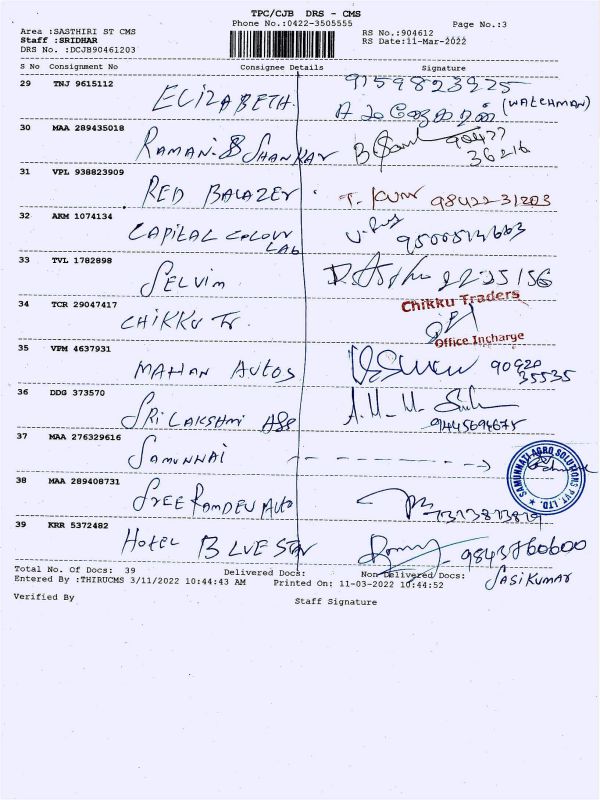 TPC/CJB DRS - CMS
Phone No.:0422-3505555
Page No.:3
Area :SASTHIRI ST CMS
Staff :SRIDHAR
DRS No. :DCJB90461203
RS No.:904612
RS Date:11-Mar-2022
S No Consignment No Consignee Details Signature
29 TNJ 9615112 ELIZABETH. 9159823225
(WATCHMAN)
30 MAA 289435018 RAMANI-B SHANKAR 90477
36216
31 VPL 938823909 RED BALAZER T. KUM 9842231203
32 AKM 1074134 CAPITAL COLOUR
LAB
9500514663
33 TVL 1782898 SELVIM
34 TCR 29047417 CHIKKU Tr.
Chikku Traders
Office Incharge
35 VPM 4637931 MAHAN AUTOS 90920
35535
36 DDG 373570 SRI LAKSHMI ASS A.M.M.
9445694675
37 MAA 276329616 SAMUNNAI
SAMUNNATI AGRO SOLUTIONS PVT. LTD.
38 MAA 289408731 SREE RAMDEV AUTO
7373873819
39 KRR 5372482 HOTEL BLUE STAR 9843760600
SASIKUMAR
Total No. Of Docs: 39 Delivered Docs: Non Delivered Docs:
Entered By :THIRUCMS 3/11/2022 10:44:43 AM Printed On: 11-03-2022 10:44:52
Verified By Staff Signature